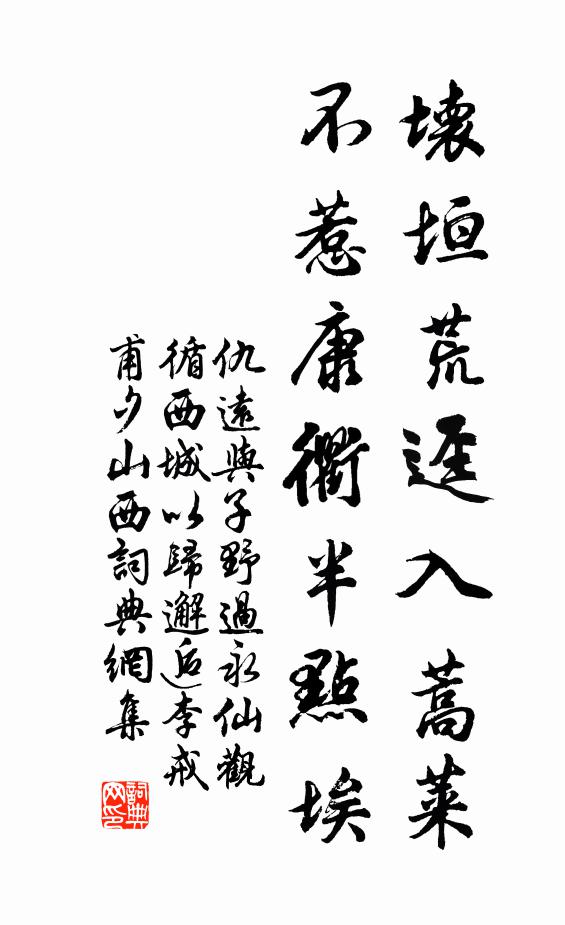 壊垣荒逕入蒿萊
不惹康衢半點埃
仇遠與子野過永仙觀
循西城以歸邂逅李戒
甫夕山西詞典網集
詞典网印